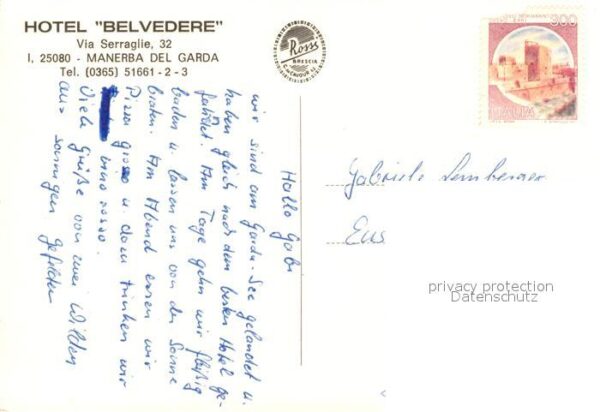 HOTEL "BELVEDERE"
Via Serraglie, 32
I. 25080 - MANERBA DEL GARDA
Tel. (0365) 51661 - 2 - 3
Rossi
BRESCIA
ITALIA
Hallo Gabi
wir sind am Garda-See gelandet u.
haben gleich nach dem besten Hotel ge-
fahndet. Am Tage gehn wir fleißig
baden u. lassen uns von der Sonne
braten. Am Abend essen wir
Pizza grosso u. dann trinken wir
vino rosso.
Viele Grüße von zwei Wilden
aus gefilden
Gabriele
Ens
privacy protection
Datenschutz